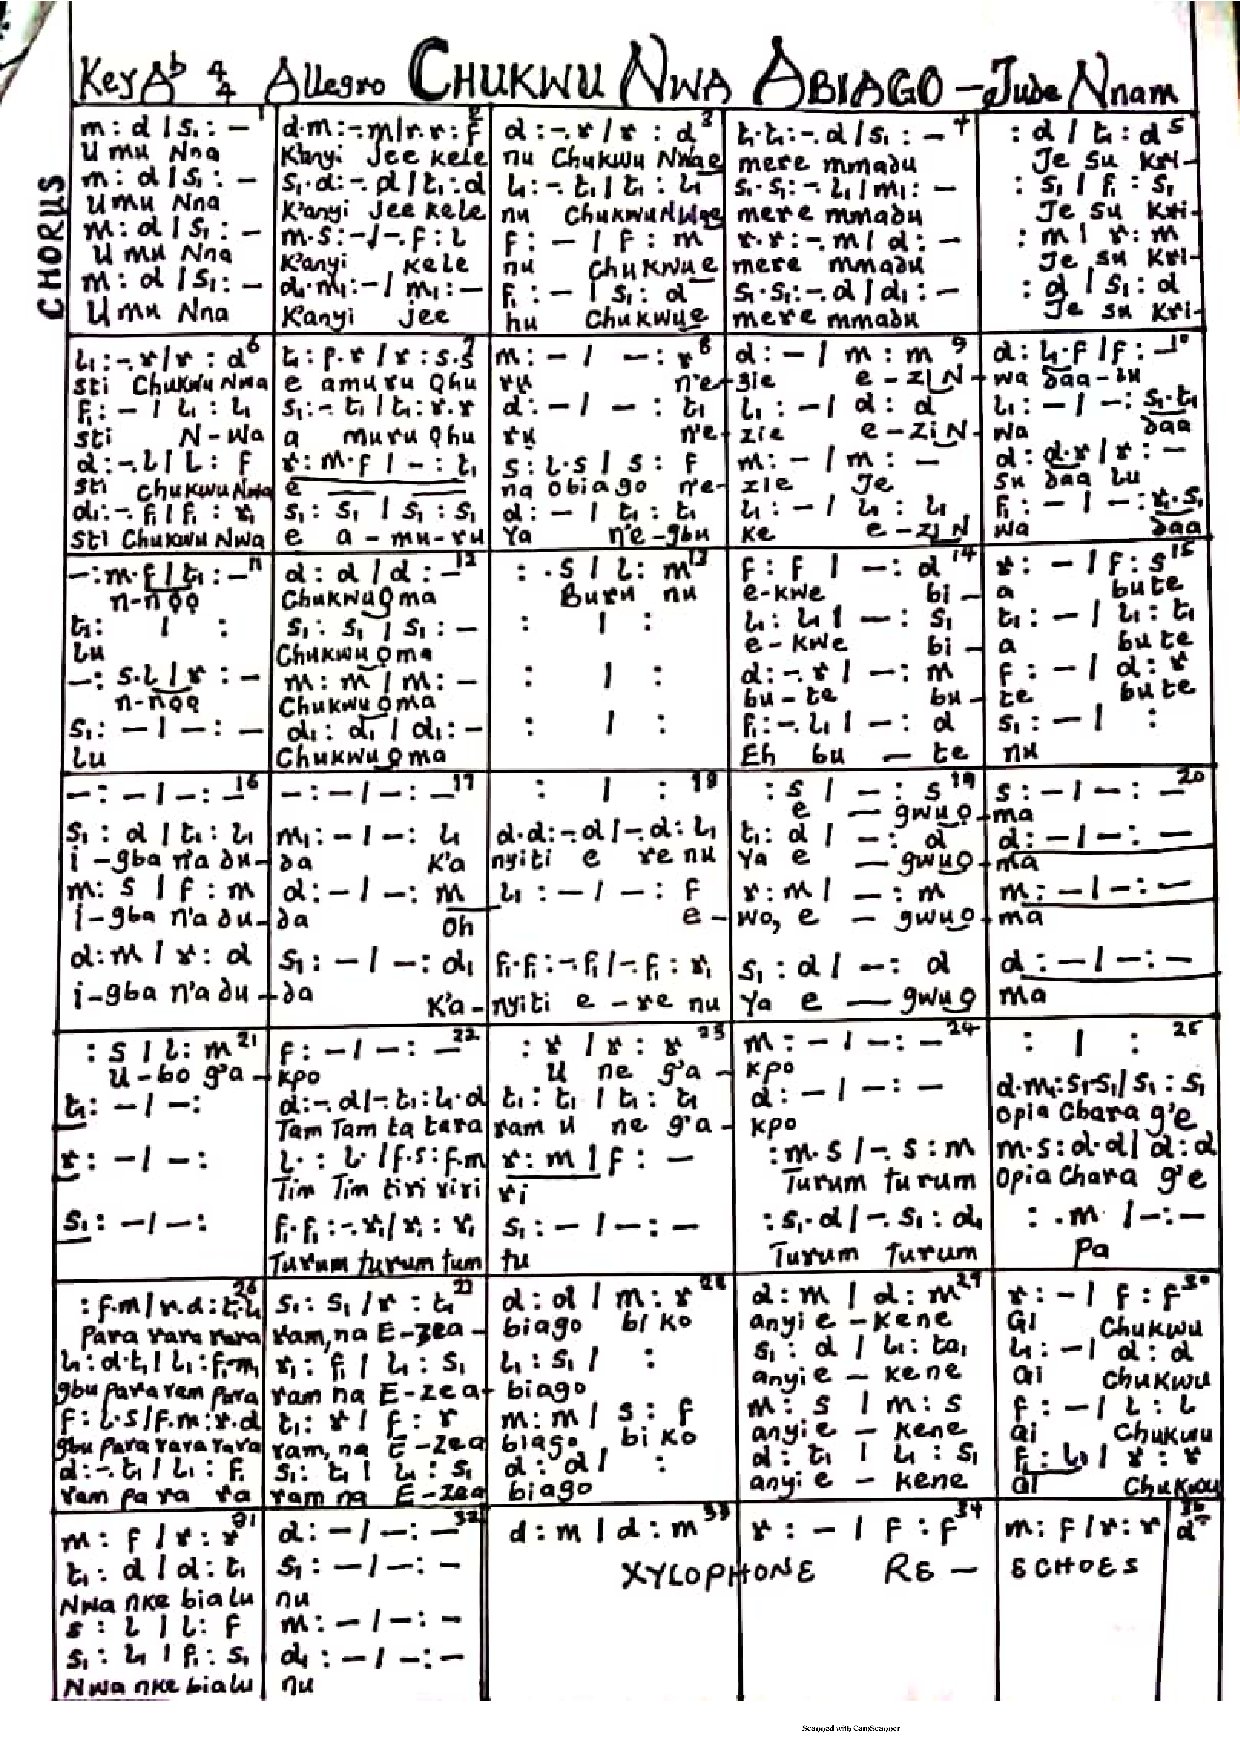 Key Ab 4/4 Allegro CHUKWU NWA ABIAGO – Jude Nnam
CHORUS
m : d / s₁ : – 1 | d.m :-. m / r.r : f 2 | d :-. r / r : d 3 | t₁.t₁ :-. d / s₁ : – 4 | : d / t₁ : d 5
Umu Nna | K'anyi Jee kele | nu Chukwu Nwa e | mere mmadu | Je su Kri-
m : d / s₁ : – | s₁.d :-. d / t₁ : d | l₁ :-. t₁ / t₁ : l₁ | s₁.s₁ :-. l₁ / m₁ : – | : s₁ / f₁ : s₁
Umu Nna | K'anyi Jee kele | nu Chukwu Nwa e | mere mmadu | Je su Kri-
m : d / s₁ : – | m.s :-/-. f : l | f : – / f : m | r.r :-. m / d : – | : m / r : m
Umu Nna | K'anyi , kele | nu Chukwu e | mere mmadu | Je su Kri-
m : d / s₁ : – | d₁.m₁ :- / m₁ :- | f₁ : – / s₁ : d | s₁.s₁ :-. d / d₁ : – | : d / s₁ : d
Umu Nna | K'anyi jee | hu Chukwu e | mere mmadu | Je su Kri-
l₁ :-. r / r : d 6 | t₁ : f.r / r : s.s 7 | m : – / – : r 8 | d : – / m : m 9 | d : l₁.f / f : – 10
sti Chukwu Nwa | e amuru Ọhu | rụ n'e- | zie e-zi N- | wa daa-lu
f₁ : – / l₁ : l₁ | s₁ :-. t₁ / t₁ : r.r | d : – / – : t₁ | l₁ : – / d : d | l₁ : – / – : s₁.t₁
sti N-wa | a muru Ọhu | rụ n'e- | zie e-zi N- | wa daa
d :-. l / l : f | r : m.f / – : t₁ | s : l.s / s : f | m : – / m : – | d : d.r / r : –
sti Chukwu Nwa | e | na obiago n'e- | zie Je | su daa lu
d₁ :-. f₁ / f₁ : r₁ | s₁ : s₁ / s₁ : s₁ | d : – / t₁ : t₁ | l₁ : – / l₁ : l₁ | f₁ : – / – : r₁.s₁
sti Chukwu Nwa | e a-mu-ru | Ya n'e-gbu | ke e-zi N | wa daa
– : m.f / t₁ : – 11 | d : d / d : – 12 | : .s / l : m 13 | f : f / – : d 14 | r : – / f : s 15
n-nọọ | Chukwu ọma | Buru nu | e-kwe bi- | a bute
t₁ : / : | s₁ : s₁ / s₁ : – | : / : | l₁ : l₁ / – : s₁ | t₁ : – / l₁ : t₁
lu | Chukwu ọma | e-kwe bi- | a bute
– : s.l / r : – | m : m / m : – | : / : | d :-. r / – : m | f : – / d : r
n-nọọ | Chukwu ọma | bu-te bu- | te bute
s₁ : – / – : – | d₁ : d₁ / d₁ : – | : / : | f₁ :-. l₁ / – : d | s₁ : – / :
lu | Chukwu ọma | Eh bu – te | nu
– : – / – : – 16 | – : – / – : – 17 | : / : 18 | : s / – : s 19 | s : – / – : – 20
e — gwu ọ- | ma
s₁ : d / t₁ : l₁ | m₁ : – / – : l₁ | d.d :-. d /-. d : l₁ | t₁ : d / – : d | d : – / – : –
i-gba n'a du- | da K'a | nyiti e re nu | Ya e — gwu ọ- | ma
m : s / f : m | d : – / – : m | l₁ : – / – : f | r : m / – : m | m : – / – : –
i-gba n'a du- | da Oh | e- | wo, e – gwu ọ- | ma
d : m / r : d | s₁ : – / – : d₁ | f₁.f₁ :-. f₁ /-. f₁ : r₁ | s₁ : d / – : d | d : – / – : –
i-gba n'a du- | da K'a- | nyiti e-re nu | Ya e — gwu ọ | ma
: s / l : m 21 | f : – / – : – 22 | : r / r : r 23 | m : – / – : – 24 | : / : 25
U-bo g'a- | kpo | U ne g'a- | kpo
t₁ : – / – : | d :-. d /-. t₁ : l₁.d | t₁ : t₁ / t₁ : t₁ | d : – / – : – | d.m₁ : s₁.s₁ / s₁ : s₁
Tam Tam ta tara | ram u ne g'a- | kpo | Opia Chara g'e
r : – / – : | l. : l. / f.s : f.m | r : m / f : – | : m.s /-. s : m | m.s : d.d / d : d
Tim Tim tiri riri | ri | Turum turum | Opia Chara g'e
s₁ : – / – : | f₁.f₁ :-. r₁ / r₁ : r₁ | s₁ : – / – : – | : s₁.d /-. s₁ : d₁ | : .m / – : –
Turum turum tum | tu | Turum Turum | Pa
: f.m / r.d : t₁.l₁ 26 | s₁ : s₁ / r : t₁ 27 | d : d / m : r 28 | d : m / d : m 29 | r : – / f : f 30
Para rara rara | ram, na E-zea- | biago biko | anyi e-kene | Gi Chukwu
l₁ : d.t₁ / l₁ : f₁.m₁ | r₁ : f₁ / l₁ : s₁ | l₁ : s₁ / : | s₁ : d / l₁ : ta₁ | l₁ : – / d : d
gbu para ram para | ram na E-zea- | biago | anyi e – kene | Gi Chukwu
f : l.s / f.m : r.d | t₁ : r / f : r | m : m / s : f | m : s / m : s | f : – / l : l
gbu para rara rara | ram, na E-zea | biago, biko | anyi e – kene | Gi Chukwu
d :-. t₁ / l₁ : f₁ | s₁ : t₁ / l₁ : s₁ | d : d / : | d : t₁ / l₁ : s₁ | f₁ : l₁ / r : r
ram para ra | ram na E-zea | biago | anyi e – kene | Gi Chukwu
m : f / r : r 31 | d : – / – : – 32 | d : m / d : m 33 | r : – / f : f 34 | m : f / r : r | d
t₁ : d / d : t₁ | s₁ : – / – : – | XYLOPHONE RE – ECHOES
Nwa nke bialu | nu
s : l / l : f | m : – / – : –
s₁ : l₁ / f₁ : s₁ | d₁ : – / – : –
Nwa nke bialu | nu
Scanned with CamScanner